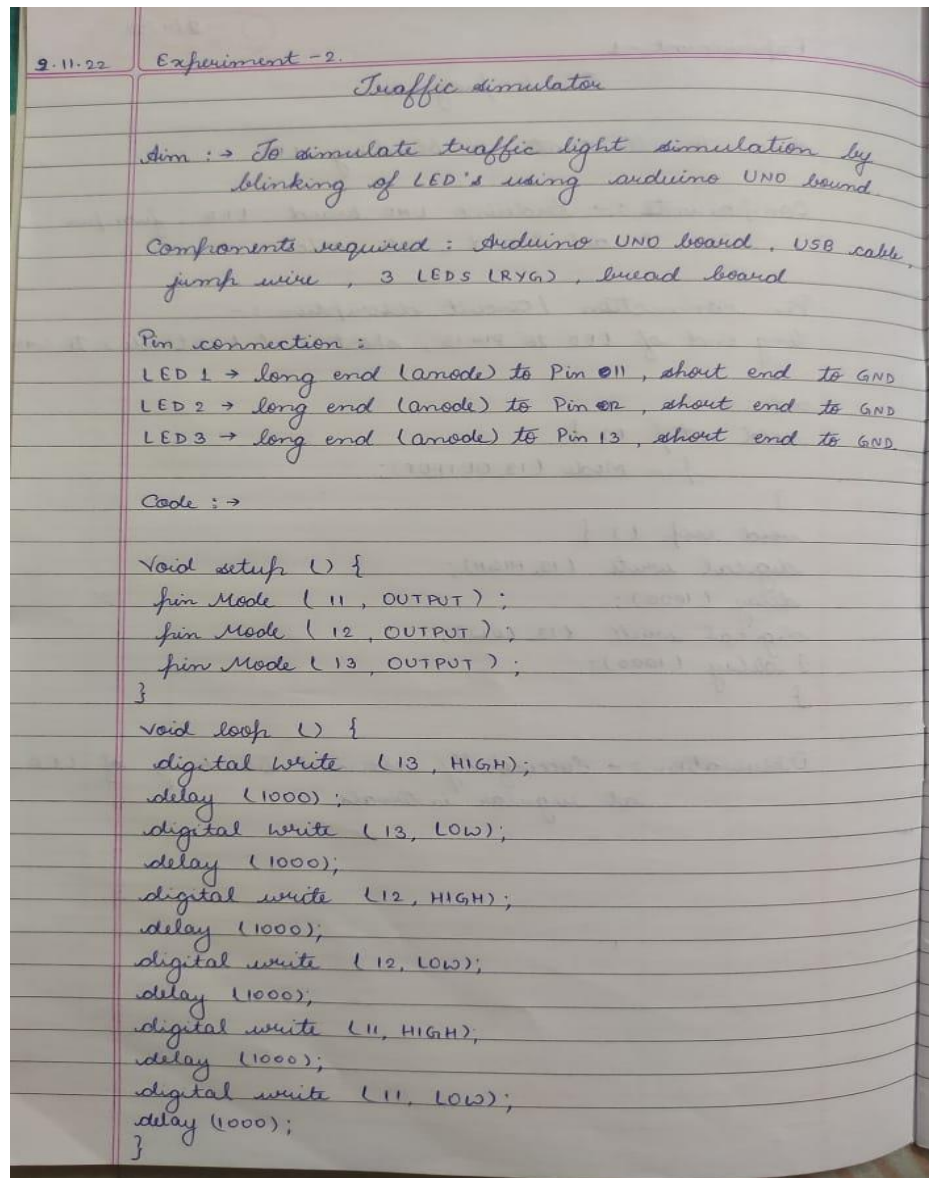 9.11.22 Experiment - 2.
Traffic simulator
Aim :→ To simulate traffic light simulation by
blinking of LED's using arduino UNO bound
Components required : Arduino UNO board, USB cable,
jump wire, 3 LEDS (RYG), bread board
Pin connection :
LED 1 → long end (anode) to Pin 11, short end to GND
LED 2 → long end (anode) to Pin 12, short end to GND
LED 3 → long end (anode) to Pin 13, short end to GND
Code :→
Void setup () {
pin Mode ( 11, OUTPUT ) ;
pin Mode ( 12, OUTPUT ) ;
pin Mode ( 13, OUTPUT ) ;
}
void loop () {
digital write (13, HIGH);
delay (1000) ;
digital write (13, LOW);
delay (1000);
digital write (12, HIGH);
delay (1000);
digital write (12, LOW);
delay (1000);
digital write (11, HIGH);
delay (1000);
digital write (11, LOW);
delay (1000);
}